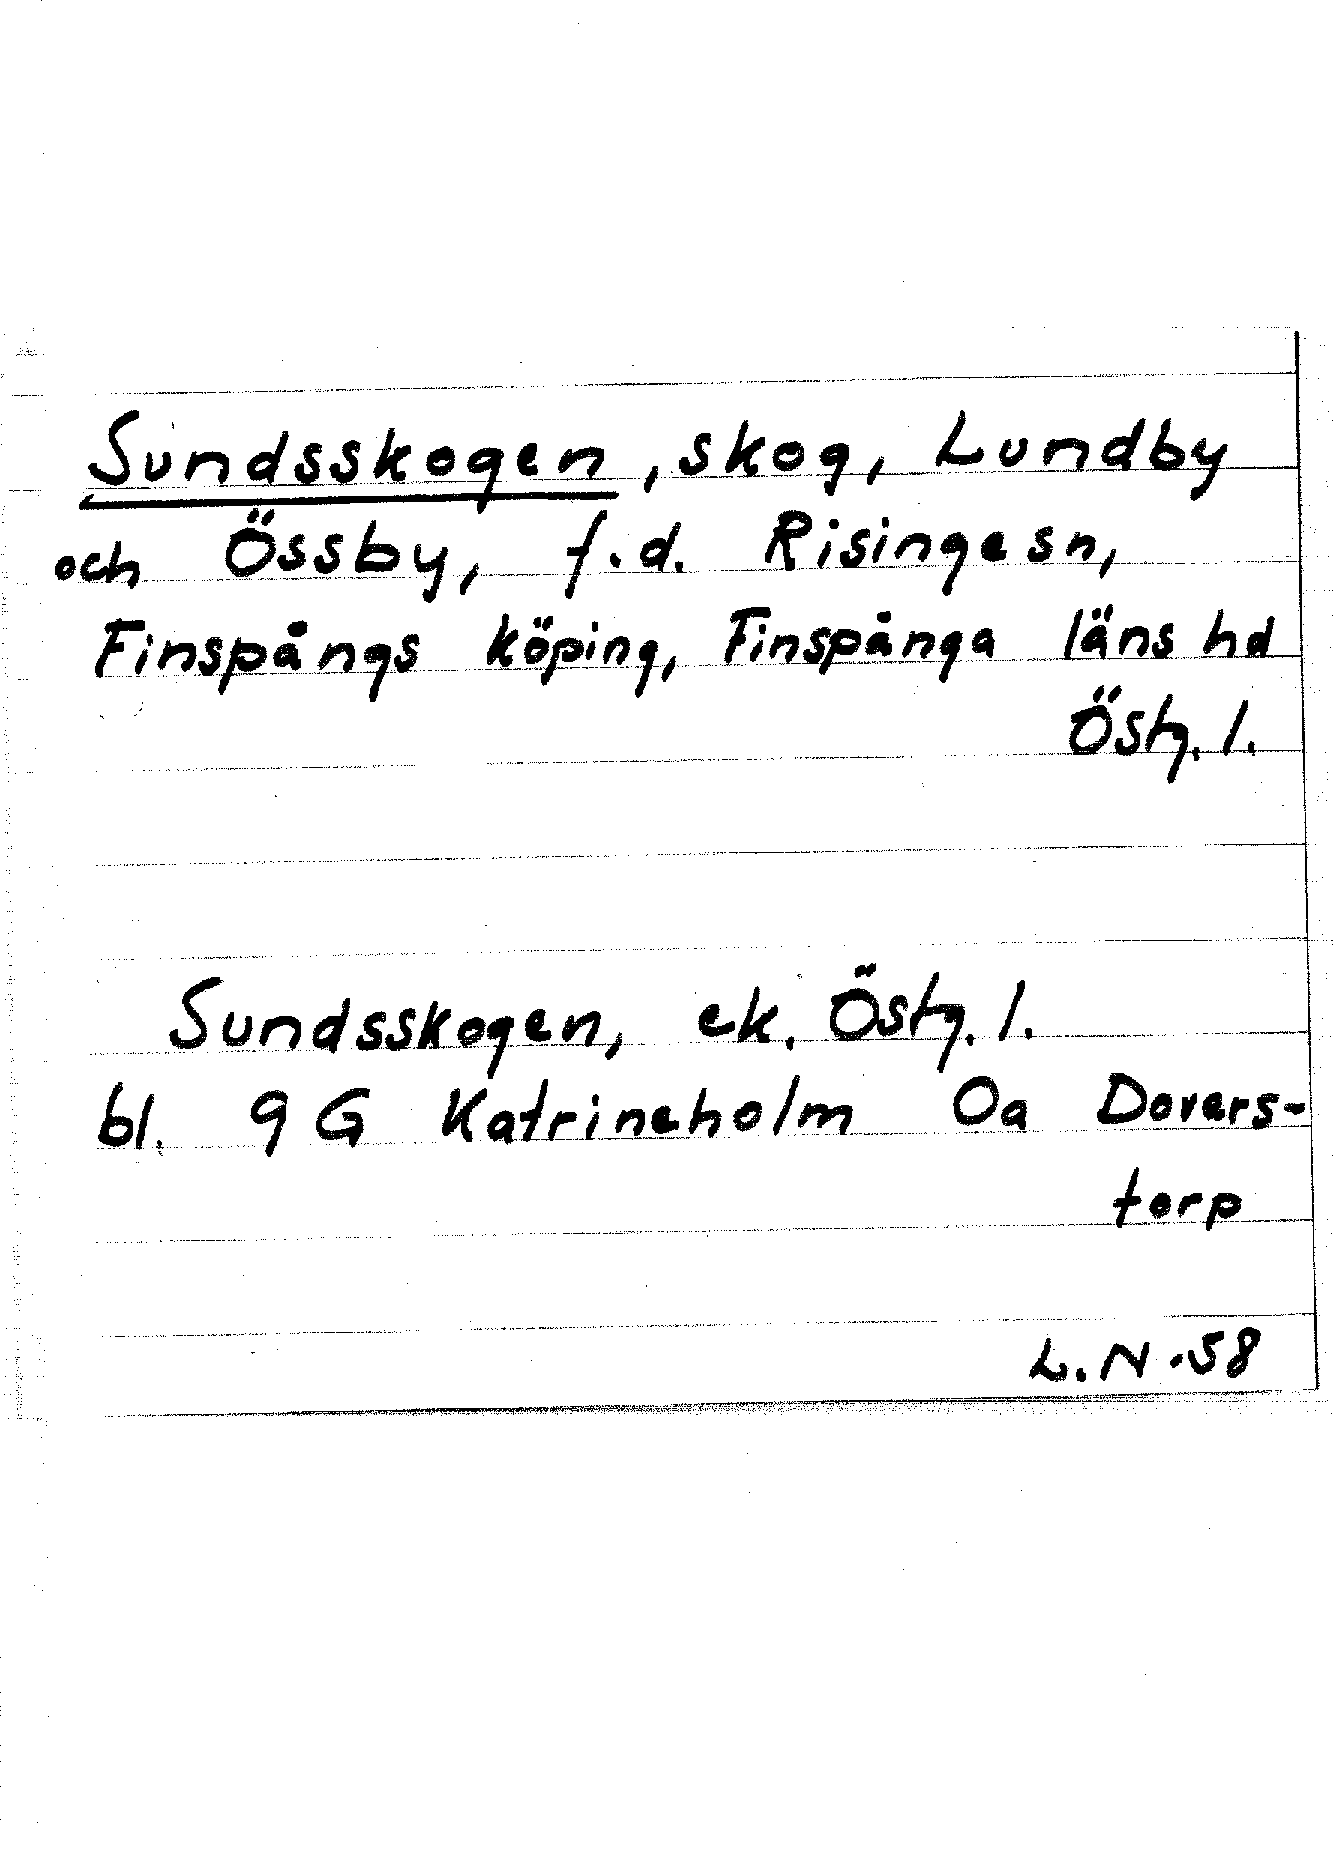 Sundsskogen, skog, Lundby
och Össby, f.d. Risinge sn,
Finspångs köping, Finspånga läns hd
Östg. l.
Sundsskogen, ek. Östg. l.
bl. 9 G Katrineholm Oa Dovers-
torp
L. N. 58